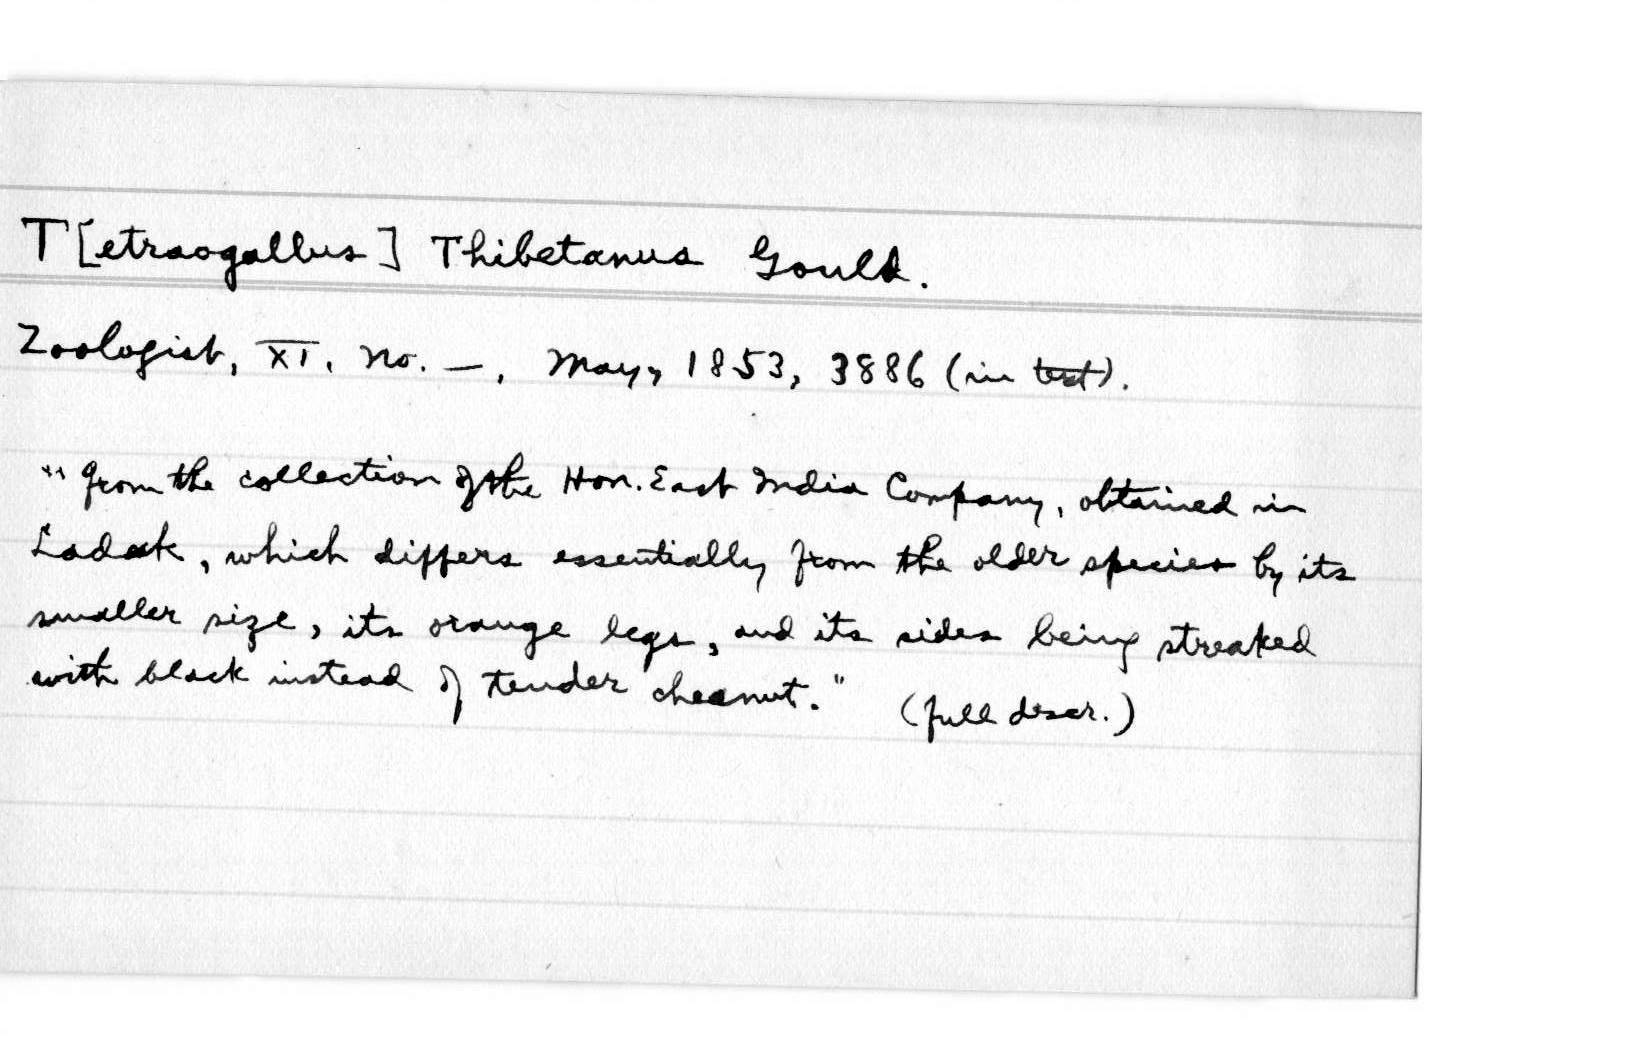 T[etraogallus] Thibetanus Gould.
Zoologist, XI, no. —, May, 1853, 3886 (in text).
"from the collection of the Hon. East India Company, obtained in
Ladak, which differs essentially from the older species by its
smaller size, its orange legs, and its sides being streaked
with black instead of tender chesnut." (full descr.)